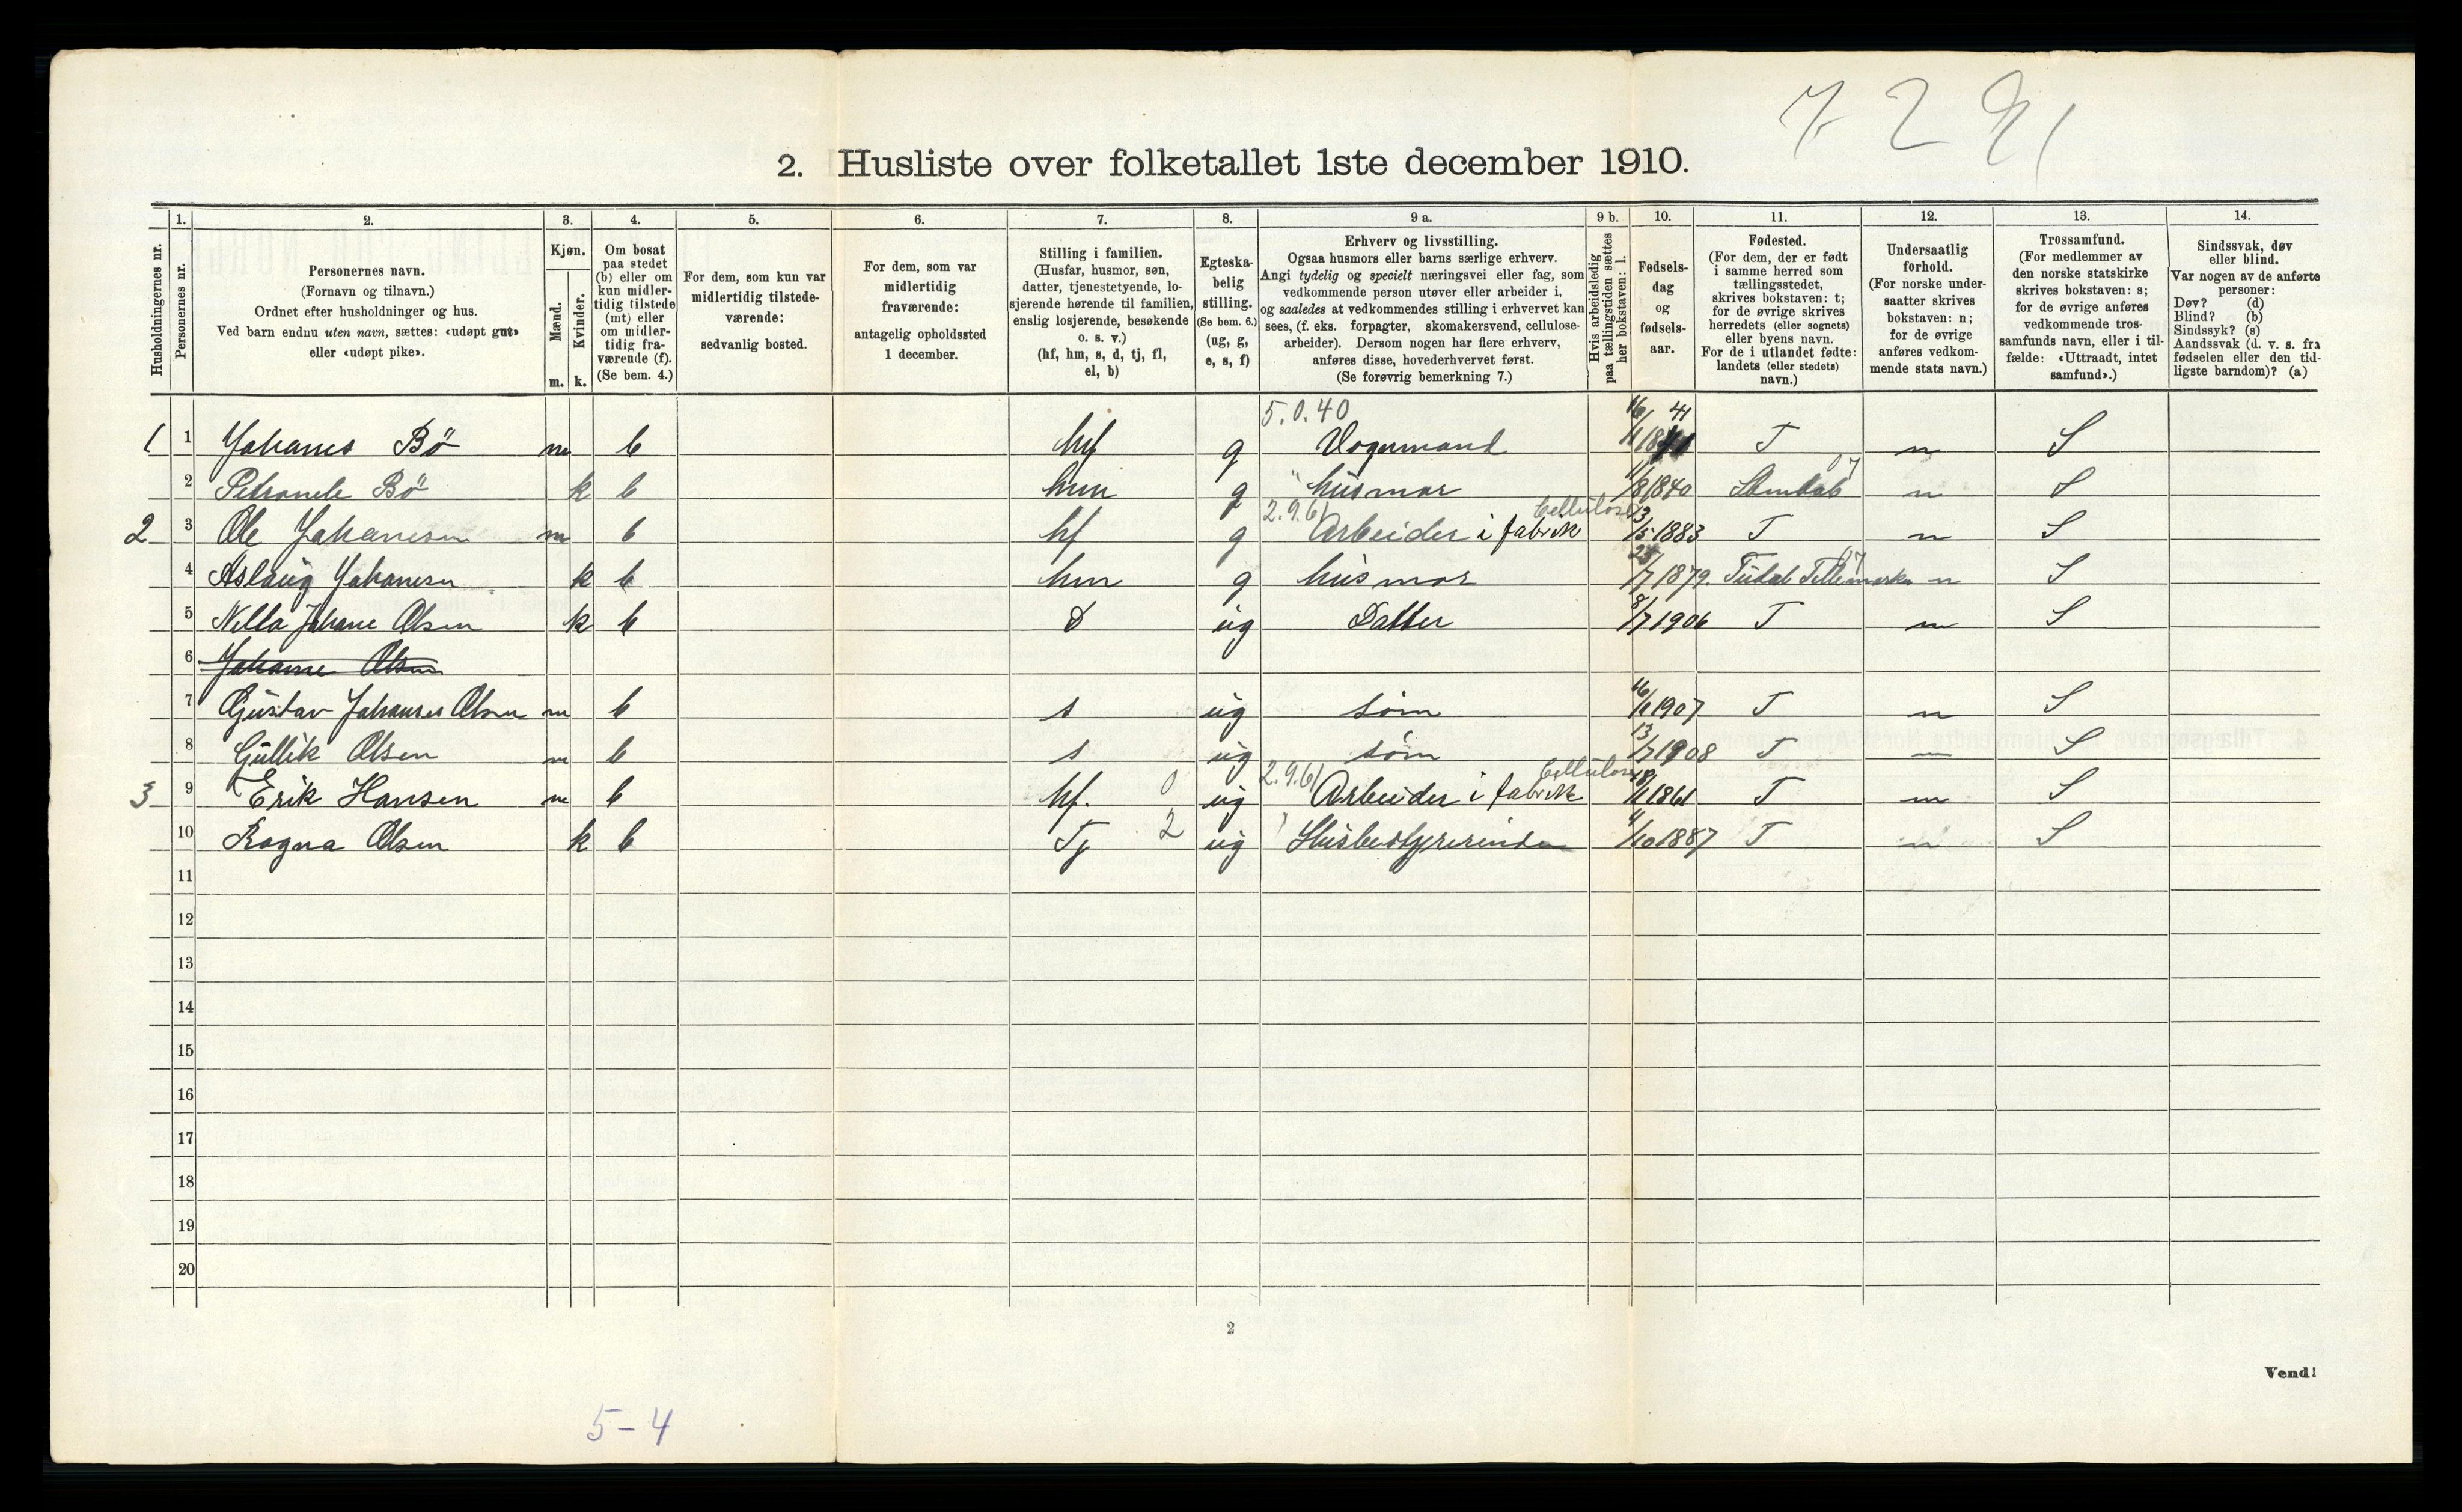 7291
2. Husliste over folketallet 1ste december 1910.
Husholdningernes nr.
1. Personernes nr.
2. Personernes navn.
(Fornavn og tilnavn.)
Ordnet efter husholdninger og hus.
Ved barn endnu uten navn, sættes: «udøpt gut»
eller «udøpt pike».
3. Kjøn.
Mænd. m.
Kvinder. k.
4. Om bosat
paa stedet
(b) eller om
kun midler-
tidig tilstede
(mt) eller
om midler-
tidig fra-
værende (f).
(Se bem. 4.)
5. For dem, som kun var
midlertidig tilstede-
værende:
sedvanlig bosted.
6. For dem, som var
midlertidig
fraværende:
antagelig opholdssted
1 december.
7. Stilling i familien.
(Husfar, husmor, søn,
datter, tjenestetyende, lo-
sjerende hørende til familien,
enslig losjerende, besøkende
o. s. v.)
(hf, hm, s, d, tj, fl,
el, b)
8. Egteska-
belig
stilling.
(Se bem. 6.)
(ug, g,
e, s, f)
9 a. Erhverv og livsstilling.
Ogsaa husmors eller barns særlige erhverv.
Angi tydelig og specielt næringsvei eller fag, som
vedkommende person utøver eller arbeider i,
og saaledes at vedkommendes stilling i erhvervet kan
sees, (f. eks. forpagter, skomakersvend, cellulose-
arbeider). Dersom nogen har flere erhverv,
anføres disse, hovederhvervet først.
(Se forøvrig bemerkning 7.)
9 b. Hvis arbeidsledig
paa tællingstiden sættes
her bokstaven: l.
10. Fødsels-
dag
og
fødsels-
aar.
11. Fødested.
(For dem, der er født
i samme herred som
tællingsstedet,
skrives bokstaven: t;
for de øvrige skrives
herredets (eller sognets)
eller byens navn.
For de i utlandet fødte:
landets (eller stedets)
navn.)
12. Undersaatlig
forhold.
(For norske under-
saatter skrives
bokstaven: n;
for de øvrige
anføres vedkom-
mende stats navn.)
13. Trossamfund.
(For medlemmer av
den norske statskirke
skrives bokstaven: s;
for de øvrige anføres
vedkommende tros-
samfunds navn, eller i til-
fælde: «Uttraadt, intet
samfund».)
14. Sindssvak, døv
eller blind.
Var nogen av de anførte
personer:
Døv? (d)
Blind? (b)
Sindssyk? (s)
Aandssvak (d. v. s. fra
fødselen eller den tid-
ligste barndom)? (a)
5.0.40
1 1 Johanes Bö m b hf g Vognmand 16/11 1841 T n S
2 Petronele Bö k b hm g husmor 11/8 1840 07 n S
2.9.61 Cellulose
2 3 Ole Johanesen m b hf g Arbeider i fabrik 13/5 1883 T n S
4 Aslaug Johanesen k b hm g husmor 25/7 1879. Tudal Tellemarken 07 n S
5 Nella Johane Olsen k b D ug Datter 8/7 1906 T n S
6 Johanne Olsen
7 Gustav Johannes Olsen m b s ug søm 16/11 1907 T n S
8 Gullik Olsen m b s ug søm 13/7 1908 T n S
2.9.61 Cellulose
3 9 Erik Hansen m b hf. 0 ug Arbeider i fabrik 18/11 1861 T n S
10 Ragna Olsen k b Tj 2 ug Husbestyrerinde 4/10 1887 T n S
11
12
13
14
15
16
17
18
19
20
2
Vend!
5-4